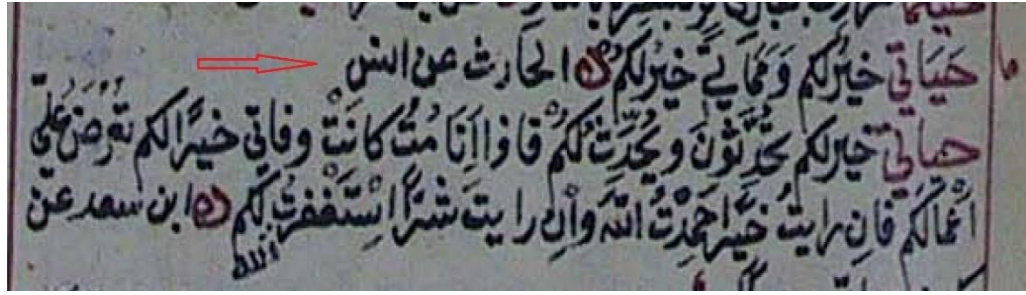 حَيَاتي خيرٌ لكم وَمَمَاتي خَيْرلكم ه الحارث عن انس
حياتي خيرلكم تُحَدِّثُونَ ويُحَدَّثُ لَكُمْ فاذا اَنَا مُتُّ كانَتْ وفاتي خيرًا لكم تُعْرَضُ عليّ
اَعْمالكُم فانِ رايتُ خَيْرًا حَمِدْتُ اللّٰه وانْ رايتُ شرًّا اسْتَغْفرتُ لكم ه ابن سعد عن
اللّٰه